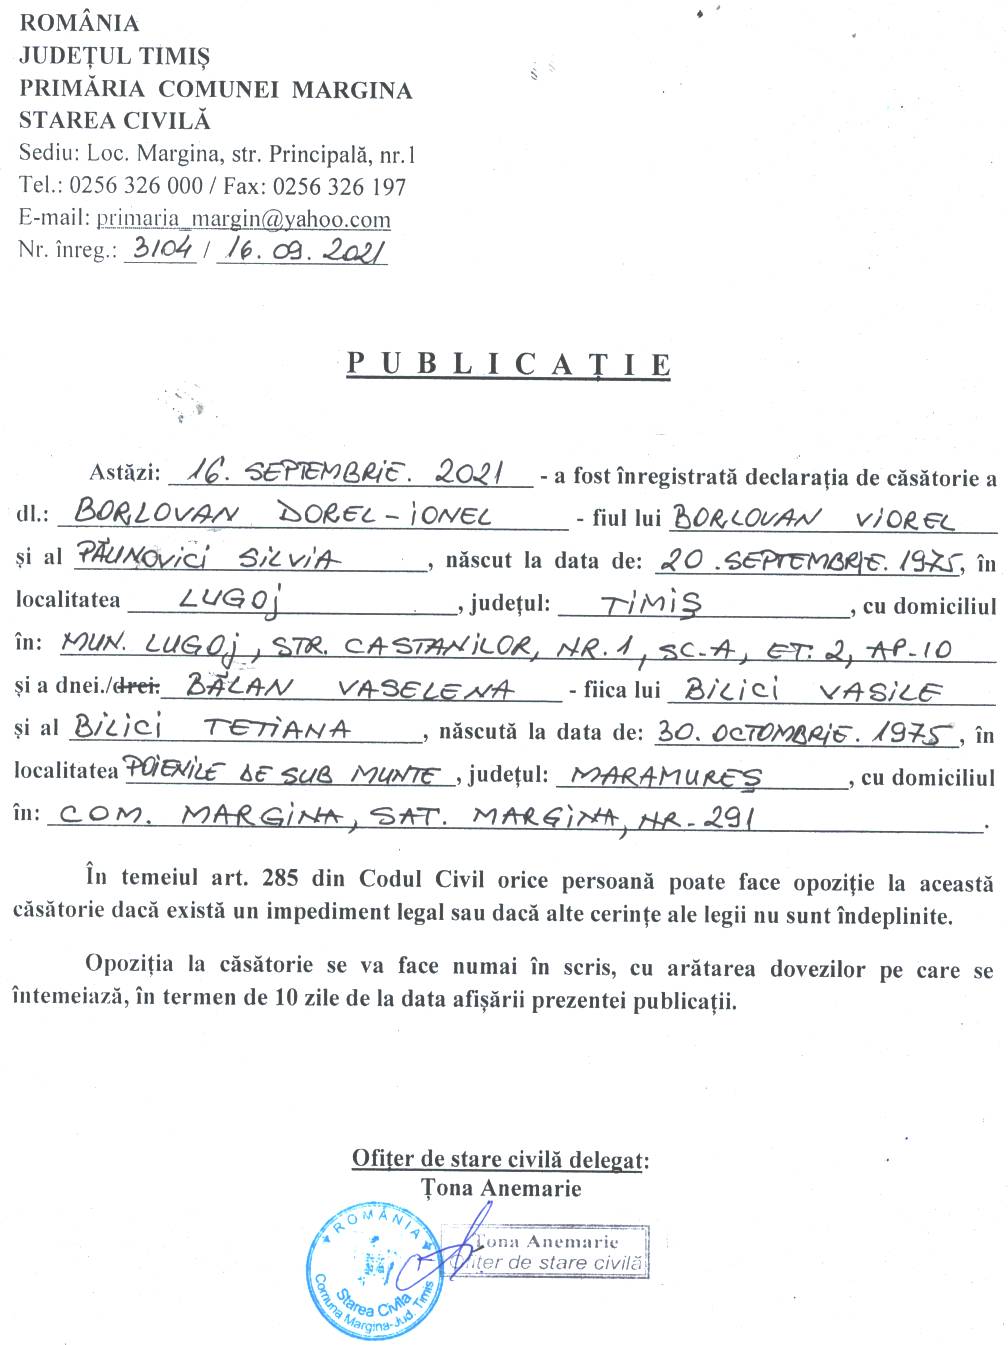 ROMÂNIA
JUDEȚUL TIMIȘ
PRIMĂRIA COMUNEI MARGINA
STAREA CIVILĂ
Sediu: Loc. Margina, str. Principală, nr.1
Tel.: 0256 326 000 / Fax: 0256 326 197
E-mail: primaria_margin@yahoo.com
Nr. înreg.: 3104 / 16.09.2021
PUBLICAȚIE
Astăzi: 16. SEPTEMBRIE. 2021 - a fost înregistrată declarația de căsătorie a
dl.: BORLOVAN DOREL-IONEL - fiul lui BORLOVAN VIOREL
și al PĂUNOVICI SILVIA, născut la data de: 20.SEPTEMBRIE.1975, în
localitatea LUGOJ, județul: TIMIȘ, cu domiciliul
în: MUN. LUGOJ, STR. CASTANILOR, NR.1, SC-A, ET.2, AP-10
și a dnei./drei. BĂLAN VASELENA - fiica lui BILICI VASILE
și al BILICI TETIANA, născută la data de: 30.OCTOMBRIE.1975, în
localitatea POIENILE DE SUB MUNTE, județul: MARAMUREȘ, cu domiciliul
în: COM. MARGINA, SAT. MARGINA, NR-291.
În temeiul art. 285 din Codul Civil orice persoană poate face opoziție la această
căsătorie dacă există un impediment legal sau dacă alte cerințe ale legii nu sunt îndeplinite.
Opoziția la căsătorie se va face numai în scris, cu arătarea dovezilor pe care se
întemeiază, în termen de 10 zile de la data afișării prezentei publicații.
Ofițer de stare civilă delegat:
Țona Anemarie
ROMÂNIA
Starea Civilă
Comuna Margina-Jud. Timiș
Țona Anemarie
Ofițer de stare civilă